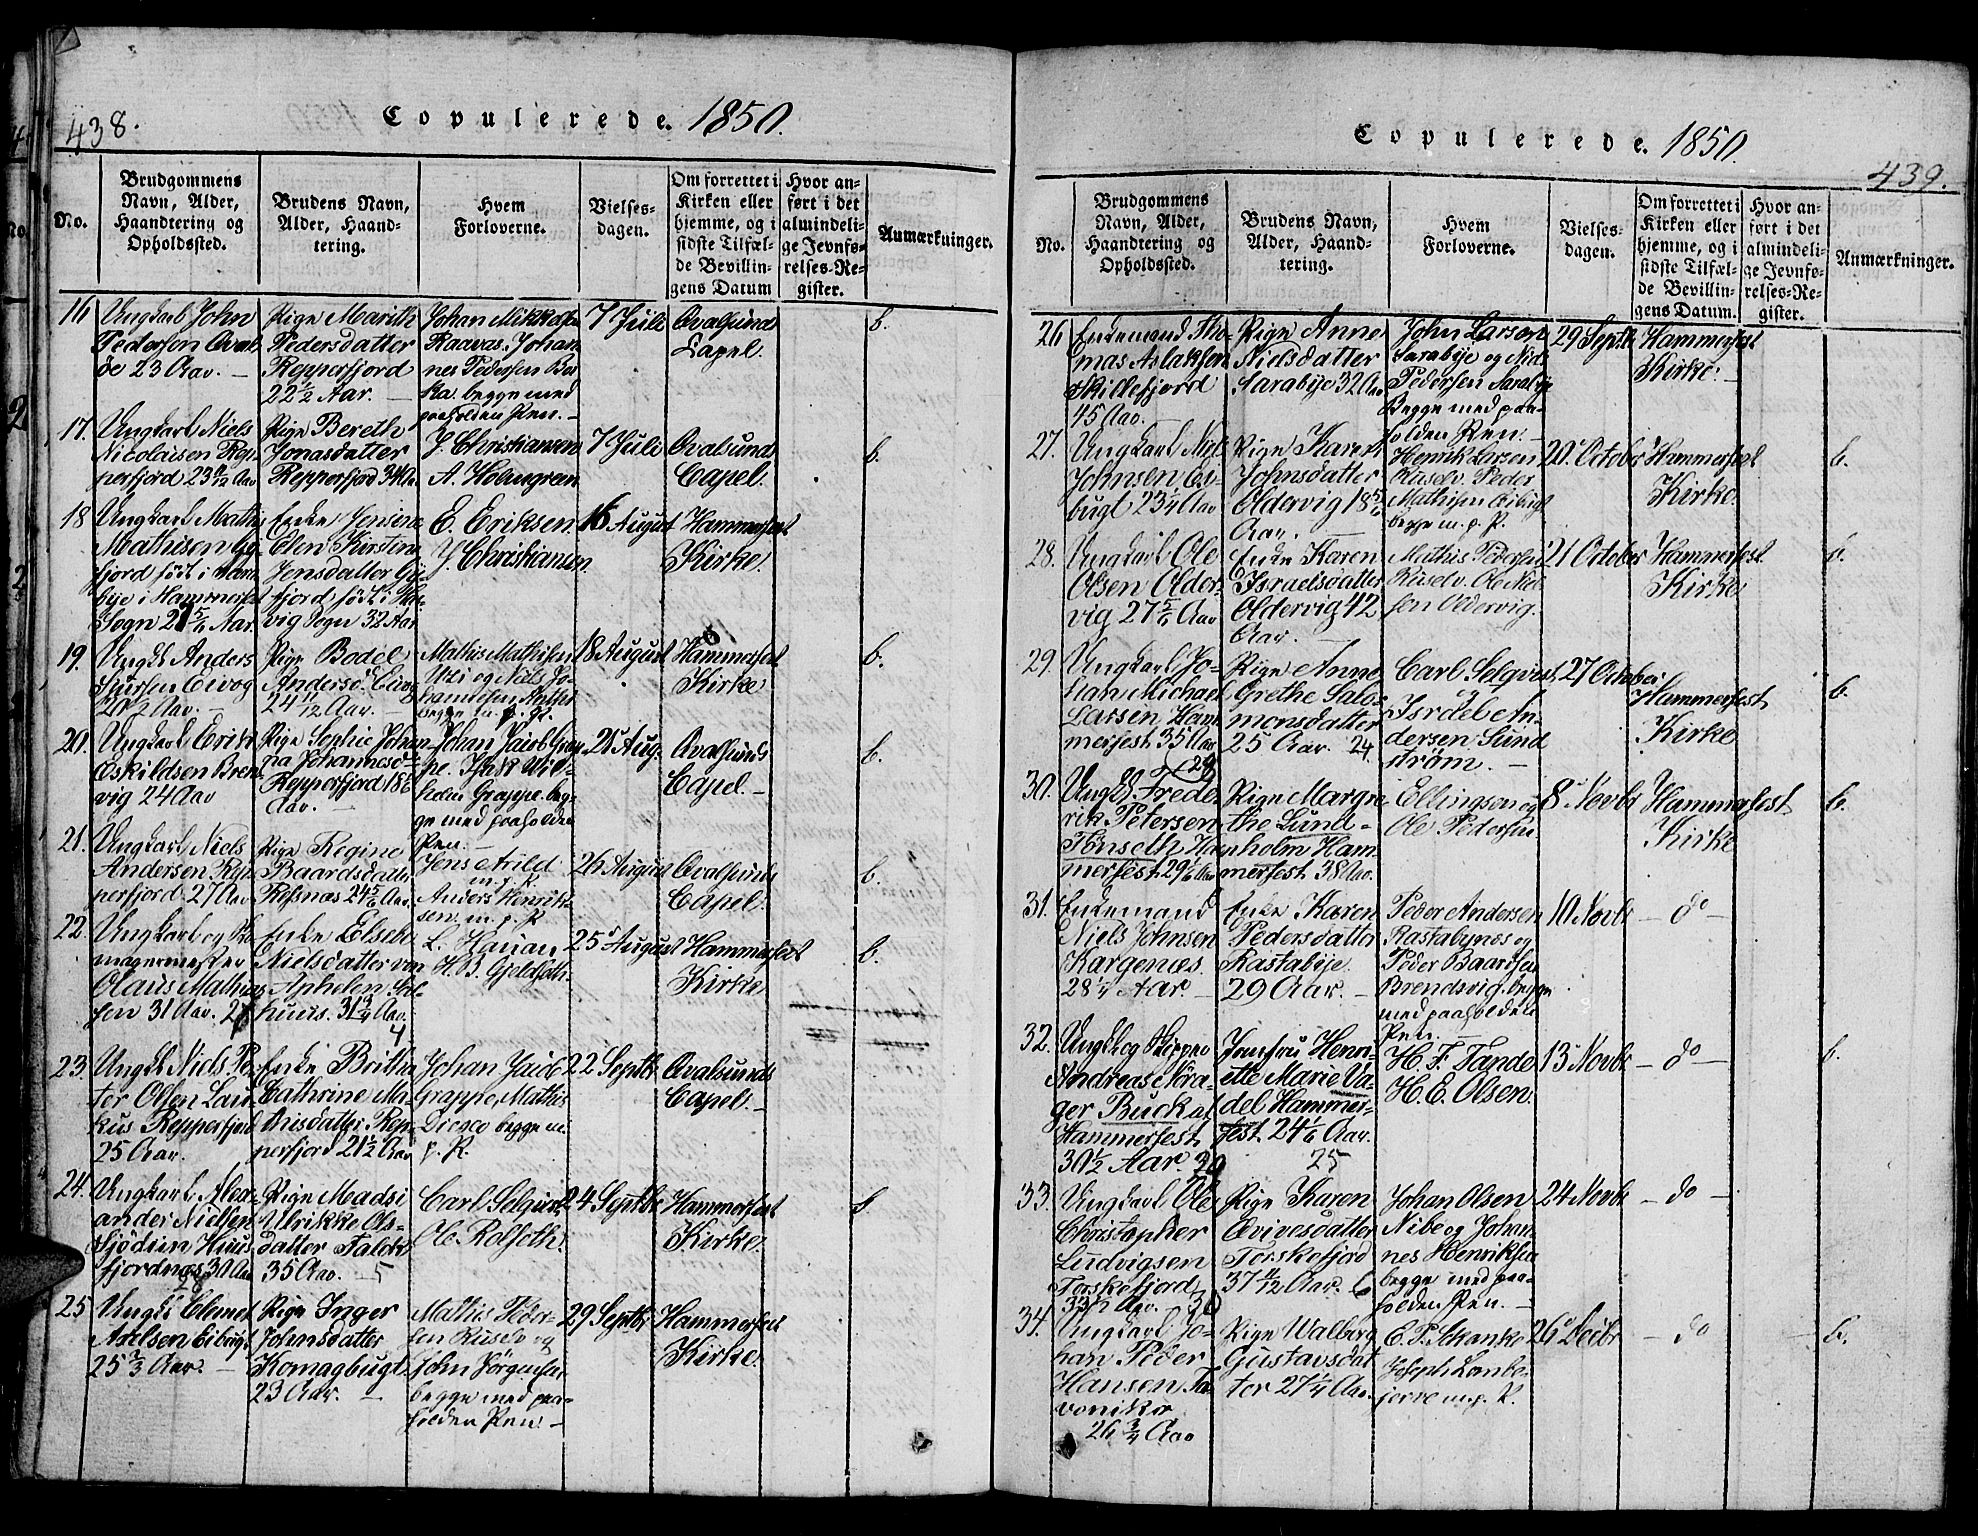 438.
Copulerede. 1850.
No.
Brudgommens
Navn, Alder,
Haandtering og
Opholdssted.
Brudens Navn,
Alder, Haand-
tering.
Hvem
Forloverne.
Vielses-
dagen.
Om forrettet i
Kirken eller
hjemme, og i
sidste Tilfæl-
de Bevillin-
gens Datum
Hvor an-
ført i det
almindeli-
ge Jevnfø-
relses-Re-
gister.
Anmærkninger.
16
Ungkarl John
Pedersen
23 Aar.
Pige Marith
Pedersdatter
Repperfjord
22½ Aar.
Johan Mikkelsen
Johan-
nes Pedersen
begge med
paaholden Pen.
7 Juli
Qvalsund
Capel.
b.
17.
Ungkarl Niels
Nicolaisen Rep-
perfjord 23 Aar
Pige Bereth
Jonasdatter
Repperfjord 34 Aar
J. Christiansen
A. Holmgren
7 Juli
Qvalsund
Capel.
b.
18
Ungkarl Mathis
Mathisen
fjord født i
bye i Hammerfest
Sogn 21 5/6 Aar.
Enke
Elen Kirsten
Jensdatter
fjord født i
vig Sogn 32 Aar
E. Eriksen
J. Christiansen.
16 August
Hammerfest
Kirke.
19.
Ungkl Anders
20½ Aar.
Pige Bodel
Andersd.
24 11/12 Aar.
Mathis Mathisen
og Niels Jo-
hannesen
begge m. p. P.
18 August
Hammerfest
Kirke
b.
20.
Ungkarl Erik
Eskildsen Bren-
vig 24 Aar
Pige Sophie Johan-
na Johannesd.
Repperfjord 18
Aar.
Johan Jacob Grap-
pe. Isak Wil-
helm Grappe. beg-
ge med paaholden
Pen.
Aug.
Qvalsunds
Capel.
b.
21.
Ungkarl Niels
Andersen Rep-
perfjord 27 Aar
Pige Regine
Baardsdatter
Refsnæs 24 5/6 Aar.
Jens Arild
m. p. P.
Anders Henrik-
sen m. p. P.
26 August
Qvalsund
Capel.
b.
22.
Ungkarl og
magermester
Olaus Mathie-
sen 31 Aar.
Enke Elsebe
Nielsdatter von
Aphelen
huus. 31¾ Aar.
4
L. Hauan
H. B. Gjeldseth.
25 August
Hammerfest
Kirke.
b.
23.
Ungkl Niels Pe-
ter Olsen Lau-
kus Repperfjord
25 Aar.
Enke Britha
Cathrine Ma-
thisdatter Rep-
perfjord 21½ Aar
Johan Jacob
Grappe, Mathis
begge m.
p. P.
22 Septbr
Qvalsunds
Capel.
24.
Ungkarl Alex-
ander Nielsen
Sjödien Huus-
fjordnæs 30 Aar
28
Pige Madsi
Ulrikke Ols-
datter
35 Aar.
5
Carl Selqvist
Ole Rolseth.
24 Septbr
Hammerfest
Kirke.
b
25
Ungkl Clemet
Axelsen Eibugt
25 ⅔ Aar.
Pige Inger
Johnsdatter
Komagbugt.
23 Aar.
Mathis Peder-
sen Ruselv og
John Jørgensen
begge med paa-
holden Pen
29 Septbr
Hammerfest
Kirke.
Copulerede. 1850.
439.
No.
Brudgommens
Navn, Alder,
Haandtering og
Opholdssted.
Brudens Navn,
Alder, Haand-
tering.
Hvem
Forloverne.
Vielses-
dagen.
Om forrettet i
Kirken eller
hjemme, og i
sidste Tilfæl-
de Bevillin-
gens Datum.
Hvor an-
ført i det
almindeli-
ge Jevnfø-
relses-Re-
gister.
Anmærkninger.
26
Enkemand Tho-
mas Aslaksen
Skillefjord
45 Aar.
Pige Anne
Nielsdatter
Sarabye 32 Aar
John Larsen
Sarabye og Niels
Pedersen Sarabye
Begge med paa-
holden Pen.
29 Septbr
Hammerfest
Kirke.
27.
Ungkarl Niels
Johnsen Ei-
bugt 23¼ Aar
Pige Karen
Johnsdatter
Oldervig 18 5/6
Aar.
Henrik Larsen
Ruselv. Peder
Mathisen Eibugt
begge m. p. P.
20 October
Hammerfest
Kirke.
b.
28.
Ungkarl Ole
Olsen Older-
vig 27 5/6 Aar
Enke Karen
Israelsdatter
Oldervig 42
Aar.
Mathis Pedersen
Ruselv. Ole Niel-
sen Oldervig.
21 October
Hammerfest
Kirke
b.
29.
Ungkarl Jo-
han Michael
Larsen Ham-
merfest 35 Aar
Pige Anne
Grethe Salo-
monsdatter
25 Aar. 24
Carl Selqvist,
Israel An-
dersen Sund-
strøm.
27 October
Hammerfest
Kirke
b.
30.
29
Ungkl. Frede-
rik Petersen
Tönseth Ham-
merfest 29 1/6 Aar
Pige Margre-
the Lund-
holm Ham-
merfest 38 Aar.
Ellingsen og
Ole Pedersen
8 Novbr
Hammerfest
Kirke
b.
31.
Enkemand
Niels Johnsen
Kargenæs
28¼ Aar.
Enke Karen
Pedersdatter
Rastabye.
29 Aar.
Peder Andersen
Rastabynæs og
Peder Baardsen
Brendsvig. begge
med paaholden
Pen.
10 Novbr
do
32.
Ungkl og Skipper
Andreas Nøra-
ger Buck af
Hammerfest
30½ Aar. 29
Jomfru Henri-
ette Marie Va-
del Hammer-
fest 24 1/6 Aar.
25
H. F. Tande
H. E. Olsen.
13 Novbr
do
b.
33.
Ungkarl Ole
Christopher
Ludvigsen
Torskefjord
33½ Aar. 30
Pige Karen
Torskefjord
37 11/12 Aar. 6
Johan Olsen
Nibe og Johan-
nes Henriksen
begge med paa-
holden Pen.
24 Novbr
do
34.
Ungkarl Jo-
han Peder
Hansen
26 ¾ Aar
Pige Walborg
Gustavsdat-
ter 27¼ Aar.
E. P. Skanke
Joseph Lambe-
jerre m. p. P.
26 Decbr
do
b.